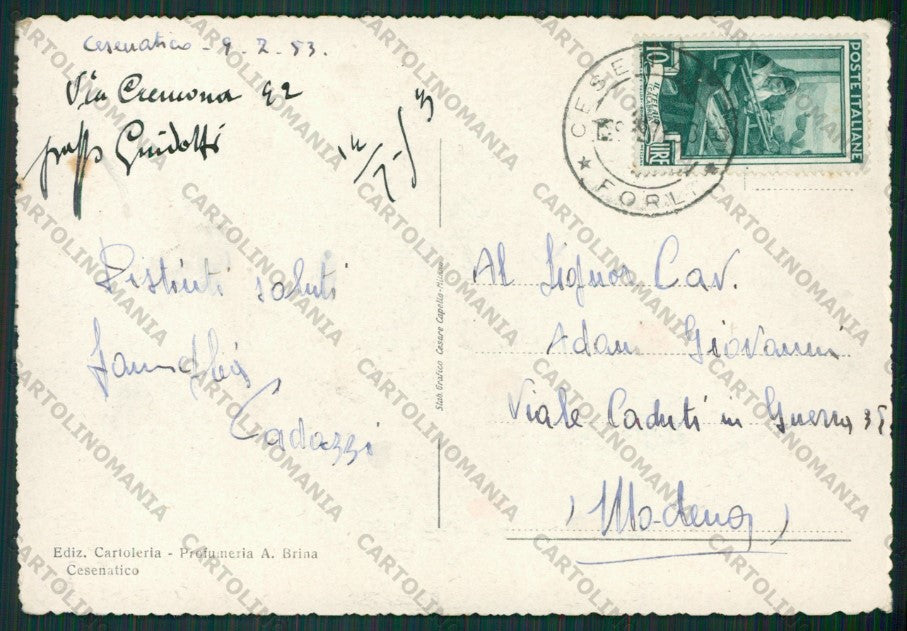 Cesenatico - 9-7-53.
Via Cremona 92
presso Guidotti
Distinti saluti
Famiglia
Cadazzi
Ediz. Cartoleria - Profumeria A. Brina
Cesenatico
Stab. Grafico Cesare Capello-Milano
POSTE ITALIANE
10
LIRE
FORLI
Al Signor Cav.
Adani Giovanni
Viale Caduti in Guerra 35
(Modena)
CARTOLINOMANIA